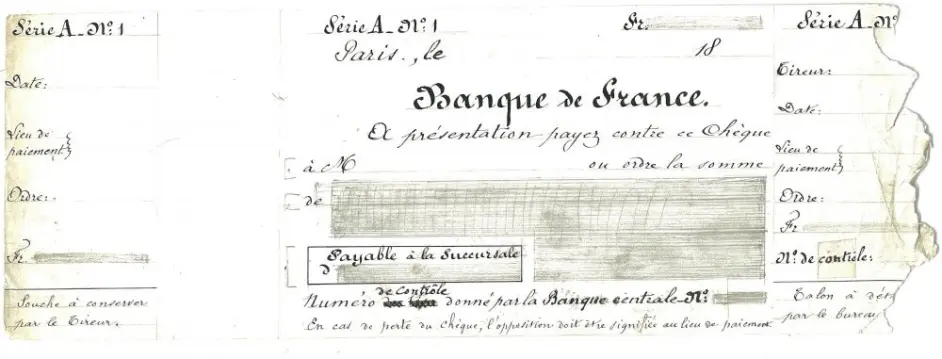 Série A Nº 1
Date:
Lieu de
paiement
Ordre:
Fr.
Souche à conserver
par le Tireur.
Série A Nº 1
Fr.
Paris, le
18
Banque de France.
A présentation payez contre ce Chèque
à M
ou ordre la somme
de
Payable à la Succursale
d'
de Contrôle
Numéro donné par la Banque centrale Nº:
En cas de perte du chèque, l'opposition doit être signifiée au lieu de paiement
Série A Nº
Tireur:
Date:
Lieu de
paiement
Ordre:
Fr.
Nº de contrôle:
Talon à
par le bureau